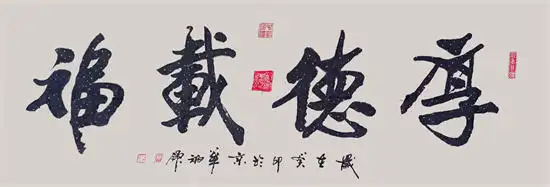 厚德載福
歲在癸卯於京華